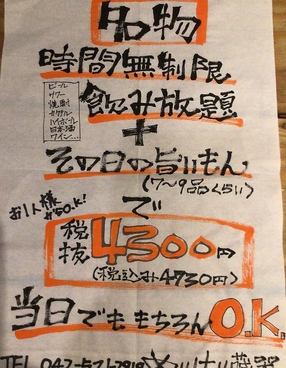 名物
時間無制限
飲み放題
ビール
サワー
焼酎
カクテル
ハイボール
日本酒
ワイン...
＋
その日の旨いもん
(7〜9品くらい)
で
お1人様からO.K!
税抜4300円
(税込み4730円)
当日でももちろんO.K.
TEL 042-